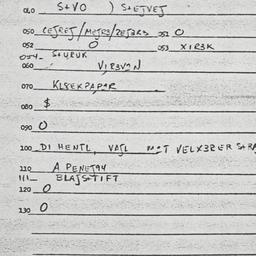 010 S+VO ) S+EJVEJ
050 CEJREJ/MEJRS/REJBRS 051 O
052 O 053 XIR3K
054- S+URUK
060 VIR3V2N
070 KL8EKPAPAR
080 $
090 O
100 DI HENTL, VAJL M2T VELX3BER S+RA
110 A PENEJ94
111- BLAJS+IFT
120 O
130 O